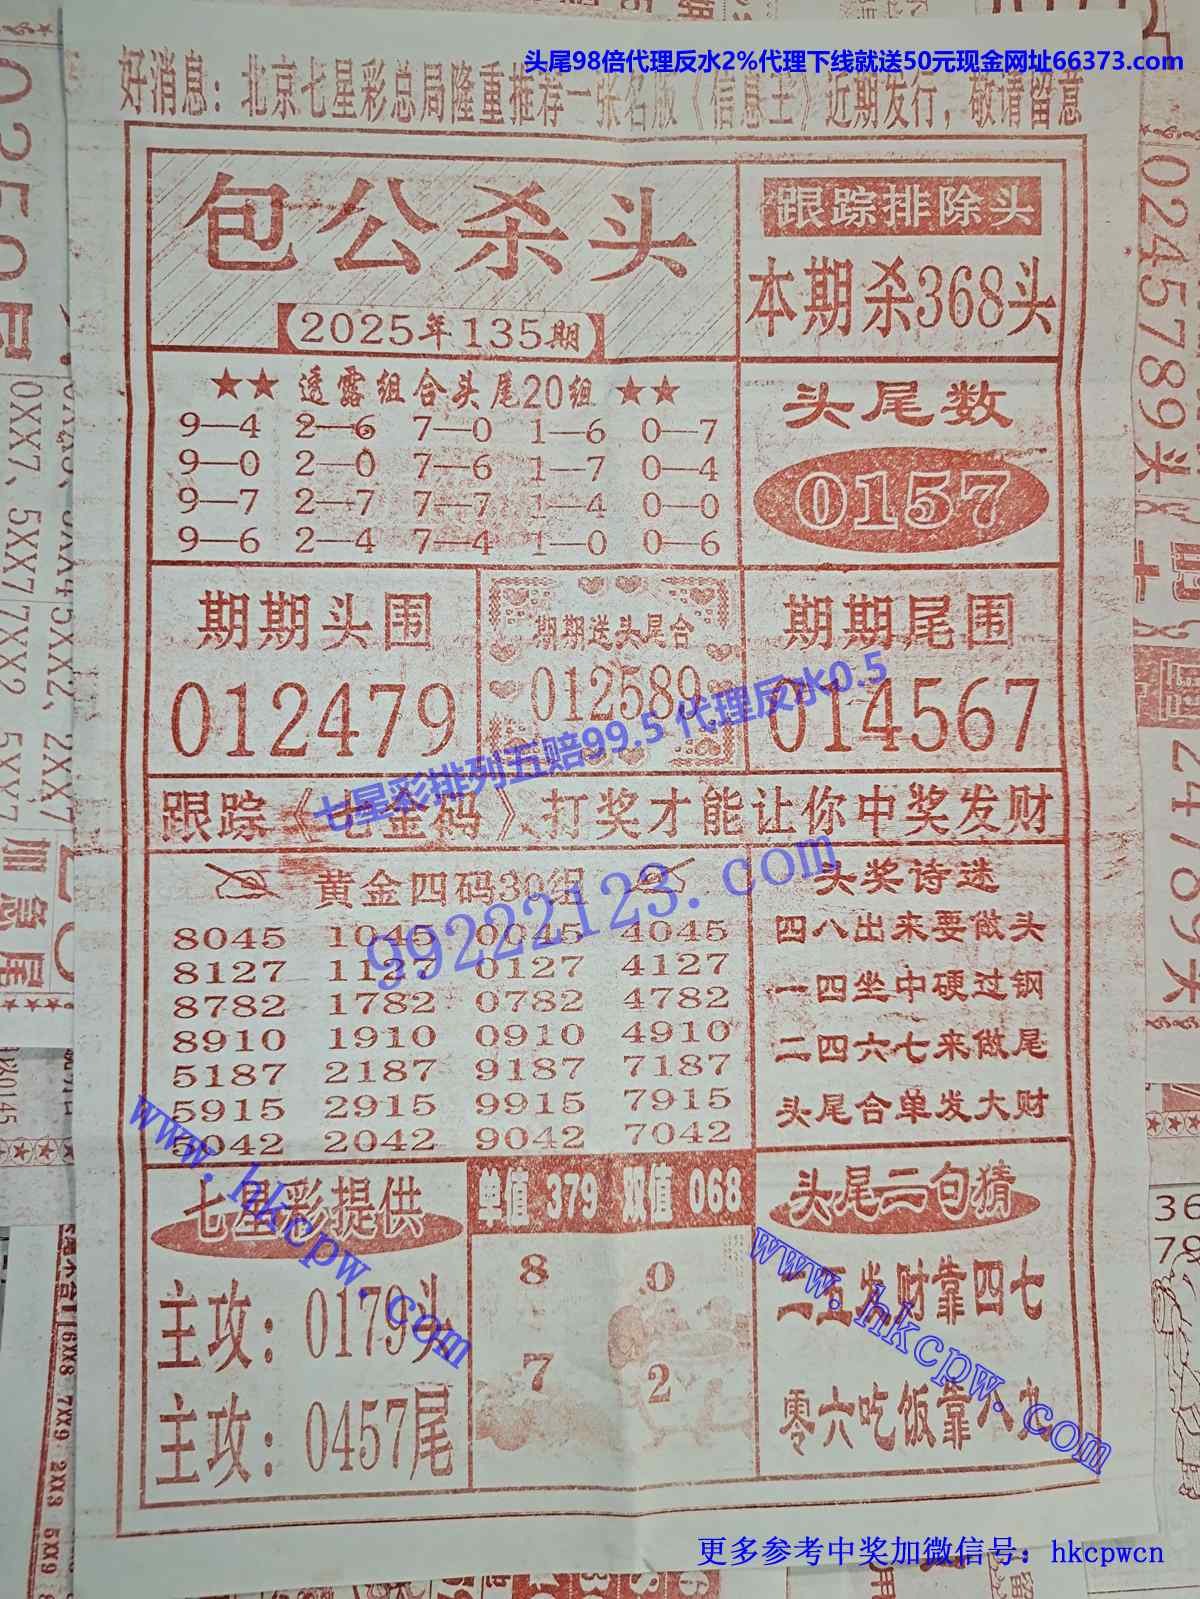 头尾98倍代理反水2%代理下线就送50元现金网址66373.com
好消息：北京七星彩总局隆重推荐一张名版《信息王》近期发行，敬请留意
包公杀头
2025年135期
跟踪排除头
本期杀368头
★★ 透露组合头尾20组 ★★
9—4 2—6 7—0 1—6 0—7
9—0 2—0 7—6 1—7 0—4
9—7 2—7 7—7 1—4 0—0
9—6 2—4 7—4 1—0 0—6
头尾数
0157
期期头围
012479
期期送头尾合
012589
期期尾围
014567
七星彩排列五赔99.5 代理反水0.5
跟踪《七金码》打奖才能让你中奖发财
黄金四码30组
8045 1045 0045 4045
8127 1127 0127 4127
8782 1782 0782 4782
8910 1910 0910 4910
5187 2187 9187 7187
5915 2915 9915 7915
5042 2042 9042 7042
99222123.com
头奖诗选
四八出来要做头
一四坐中硬过钢
二四六七来做尾
头尾合单发大财
七星彩提供
主攻：0179头
主攻：0457尾
www.hkcpw.com
单值 379 双值 068
8 0
7 2
头尾二句猜
二五发财靠四七
零六吃饭靠八九
www.hkcpw.com
更多参考中奖加微信号：hkcpwcn
0245789头
24789头
0XX7、5XX7
7XX2、5XX7
加急尾